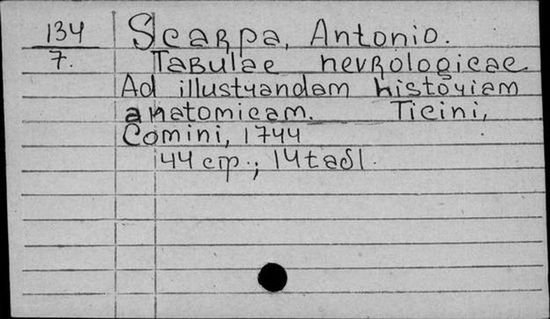 134 Scarpa, Antonio.
7. Tabulae nevrologicae
Ad illustrandam historiam
anatomicam. Ticini,
Comini, 1744
44 cтр.; 14 tabl.